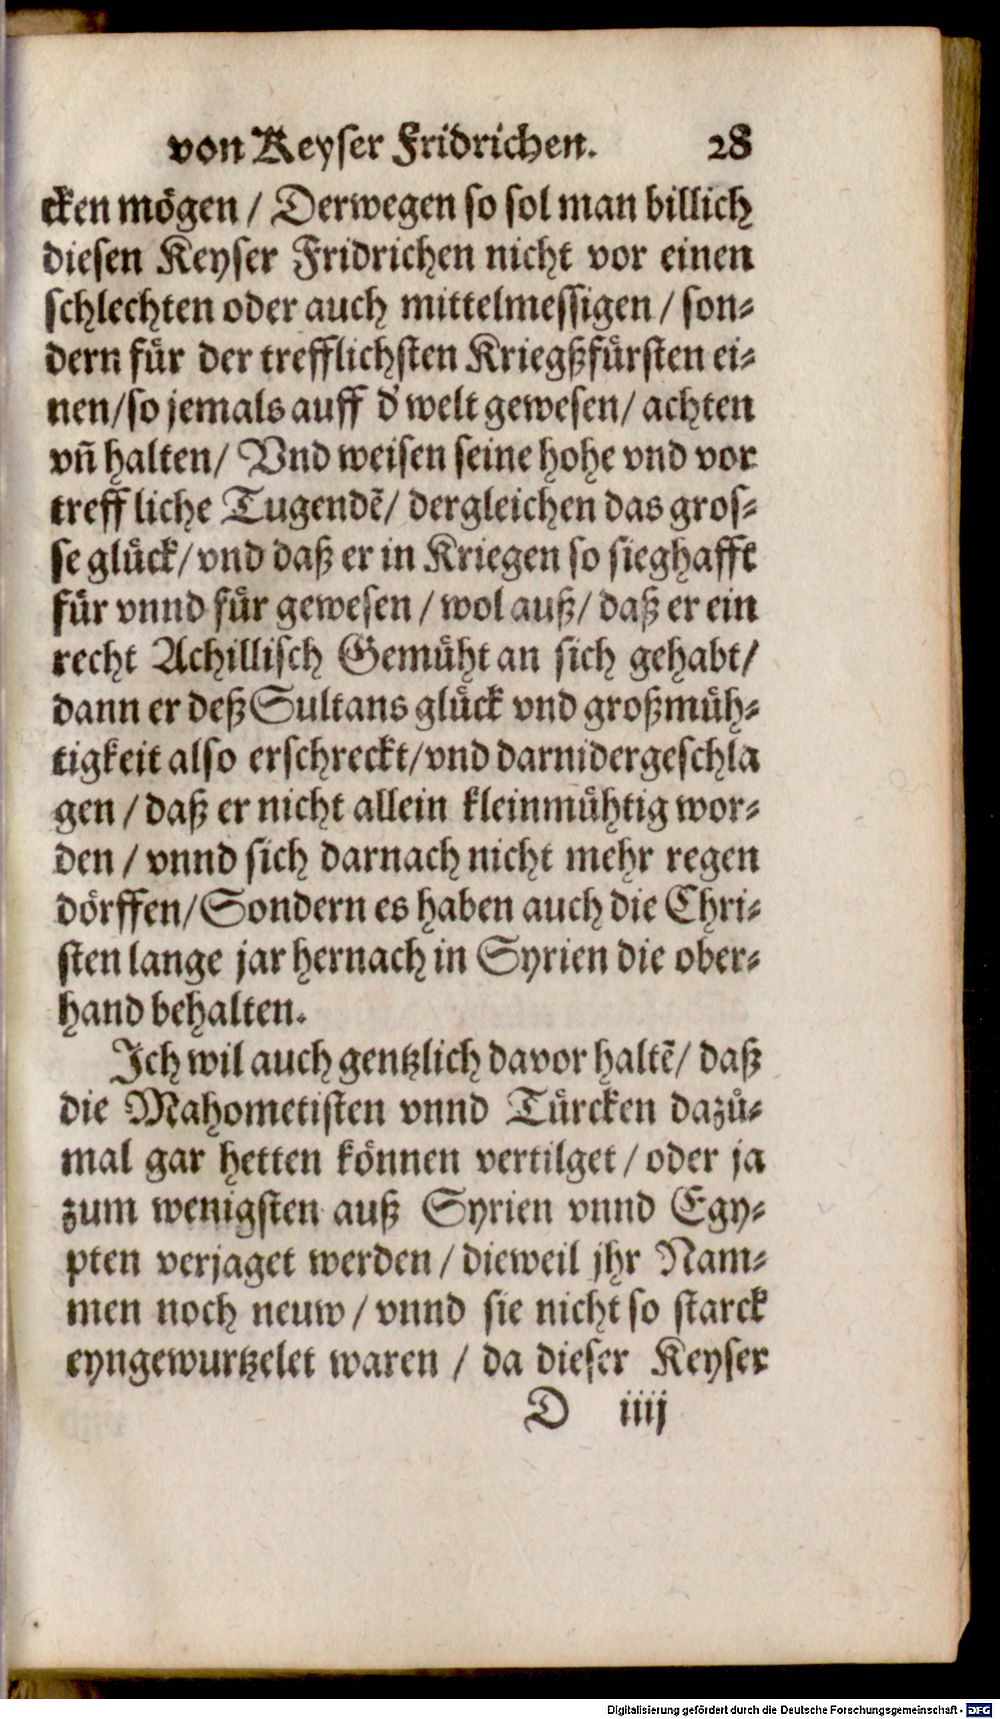 von Keyser Fridrichen. 28
cken mögen / Derwegen so sol man billich
diesen Keyser Fridrichen nicht vor einen
schlechten oder auch mittelmessigen / son-
dern für der trefflichsten Kriegßfürsten ei-
nen/so jemals auff d' welt gewesen/ achten
vn̄ halten/ Vnd weisen seine hohe vnd vor
treffliche Tugendē/ dergleichen das gros-
se glück/vnd daß er in Kriegen so sieghafft
für vnnd für gewesen / wol auß/ daß er ein
recht Achillisch Gemüht an sich gehabt/
dann er deß Sultans glück vnd großmüh-
tigkeit also erschreckt/vnd darnidergeschla
gen / daß er nicht allein kleinmühtig wor-
den / vnnd sich darnach nicht mehr regen
dörffen/Sondern es haben auch die Chri-
sten lange jar hernach in Syrien die ober-
hand behalten.
Ich wil auch gentzlich davor haltē/ daß
die Mahometisten vnnd Türcken dazů-
mal gar hetten können vertilget / oder ja
zum wenigsten auß Syrien vnnd Egy-
pten verjaget werden / dieweil jhr Nam-
men noch neuw / vnnd sie nicht so starck
eyngewurtzelet waren / da dieser Keyser
D iiij
Digitalisierung gefördert durch die Deutsche Forschungsgemeinschaft - DFG